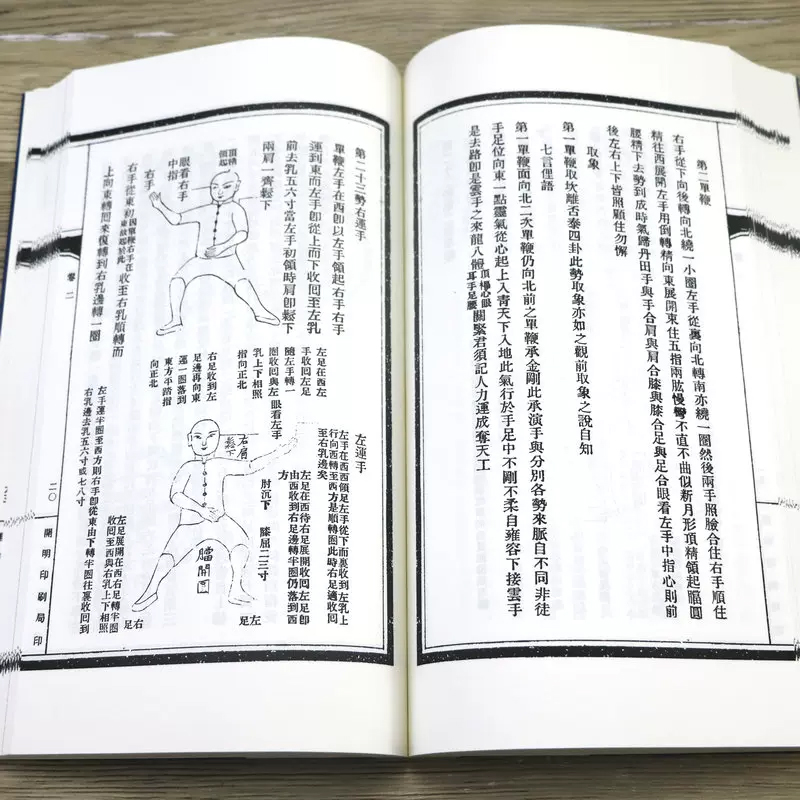 第二單鞭
右手從下向後轉向北繞一小圈左手從裏向北轉南亦繞一圈然後兩手照臉合住右手順住
精往西展開左手用倒轉精向東展開東住五指兩肱慢彎不直不曲似新月形頂精領起襠圓
腰精下去勢到成時氣歸丹田手與手合肩與肩合膝與膝合足與足合眼看左手中指心則前
後左右上下皆照顧住勿懈
取象
第一單鞭取坎離否泰四卦此勢取象亦如之觀前取象之說自知
七言俚語
第一單鞭面向北二次單鞭仍向北前之單鞭承金剛此承演手與分別各勢來脈自不同非徒
手足位向東一點靈氣從心起上入青天下入地此氣行於手足中不剛不柔自雍容下接雲手
是去路卽是雲手之來龍八體頂襠心眼耳手足腰關緊君須記人力運成奪天工
第二十三勢右運手
單鞭左手在西卽以左手領起右手右手
運到東而左手卽從上而下收回至左乳
前去乳五六寸當左手初領時肩卽鬆下
兩肩一齊鬆下
頂精領起
眼看右手中指
右手
右手從東初因單鞭右手在東故起於此收至右乳順轉而
上向東轉回來復轉到右乳邊轉一圈
左足在西左
手收回左足
隨左手轉一
圈收回與左
乳上下相照
指向正北
右足收到左
足邊再向東
運一圈落到
東方平踏指
向正北
左運手
左手在西西領足左手從下而裏收到左乳上
行向西轉至西方是順轉圈此時右足適收回
至右乳邊矣
左足在西待右足展開收回左足卽
由西收到右足邊轉半圈仍落到西
方
眼看左手
右肩鬆下
肘沉下
膝屈二三寸
襠開圓
左足
右足
左足展開在西右足轉半圈
收回至西與右乳上下相照
左手運半圈至西方則右手卽從東由下轉半圈往裏收回到
右乳邊去乳五六寸或七八寸
卷二
二〇
開明印刷局印